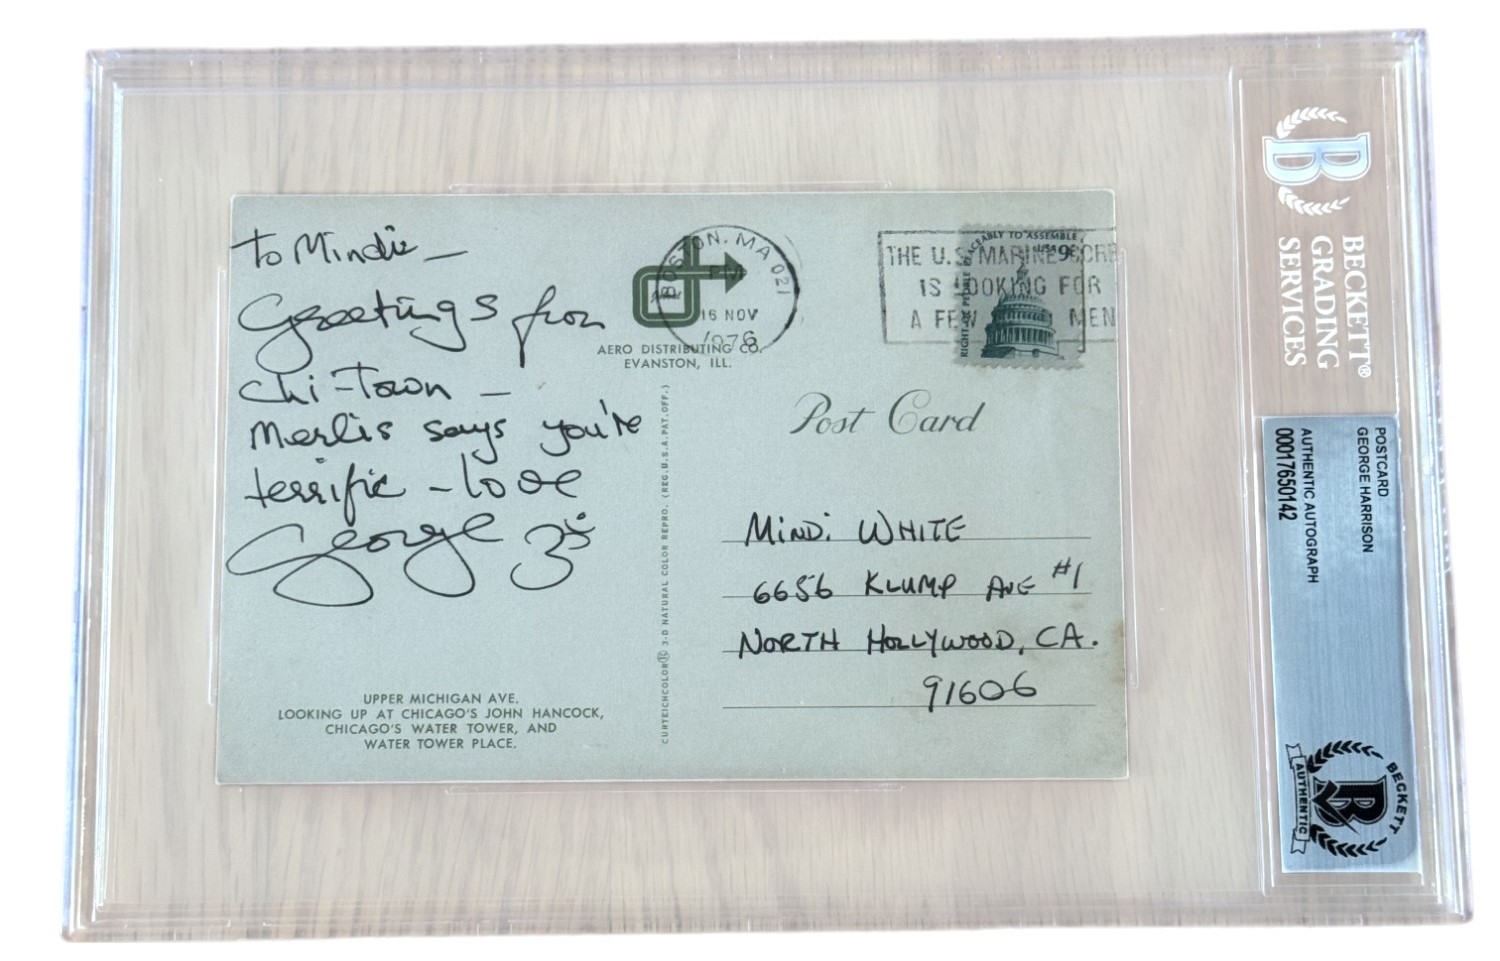 To Mindie —
Greetings from
Chi-Town —
Merlis says you're
terrific - love
George ॐ
UPPER MICHIGAN AVE.
LOOKING UP AT CHICAGO'S JOHN HANCOCK,
CHICAGO'S WATER TOWER, AND
WATER TOWER PLACE.
AERO DISTRIBUTING CO.
EVANSTON, ILL.
BOSTON, MA 021
PM
16 NOV
1976
THE U.S. MARINE CORP
IS LOOKING FOR
A FEW MEN
RIGHT OF PEOPLE PEACEABLY TO ASSEMBLE
USA 9c
CURTEICHCOLOR® 3-D NATURAL COLOR REPRO. (REG. U.S.A. PAT. OFF.)
Post Card
MINDi WHITE
6656 KLUMP AVE #1
NORTH HOLLYWOOD, CA.
91606
B
BECKETT®
GRADING
SERVICES
POSTCARD
GEORGE HARRISON
AUTHENTIC AUTOGRAPH
00017650142
BECKETT
B
AUTHENTIC